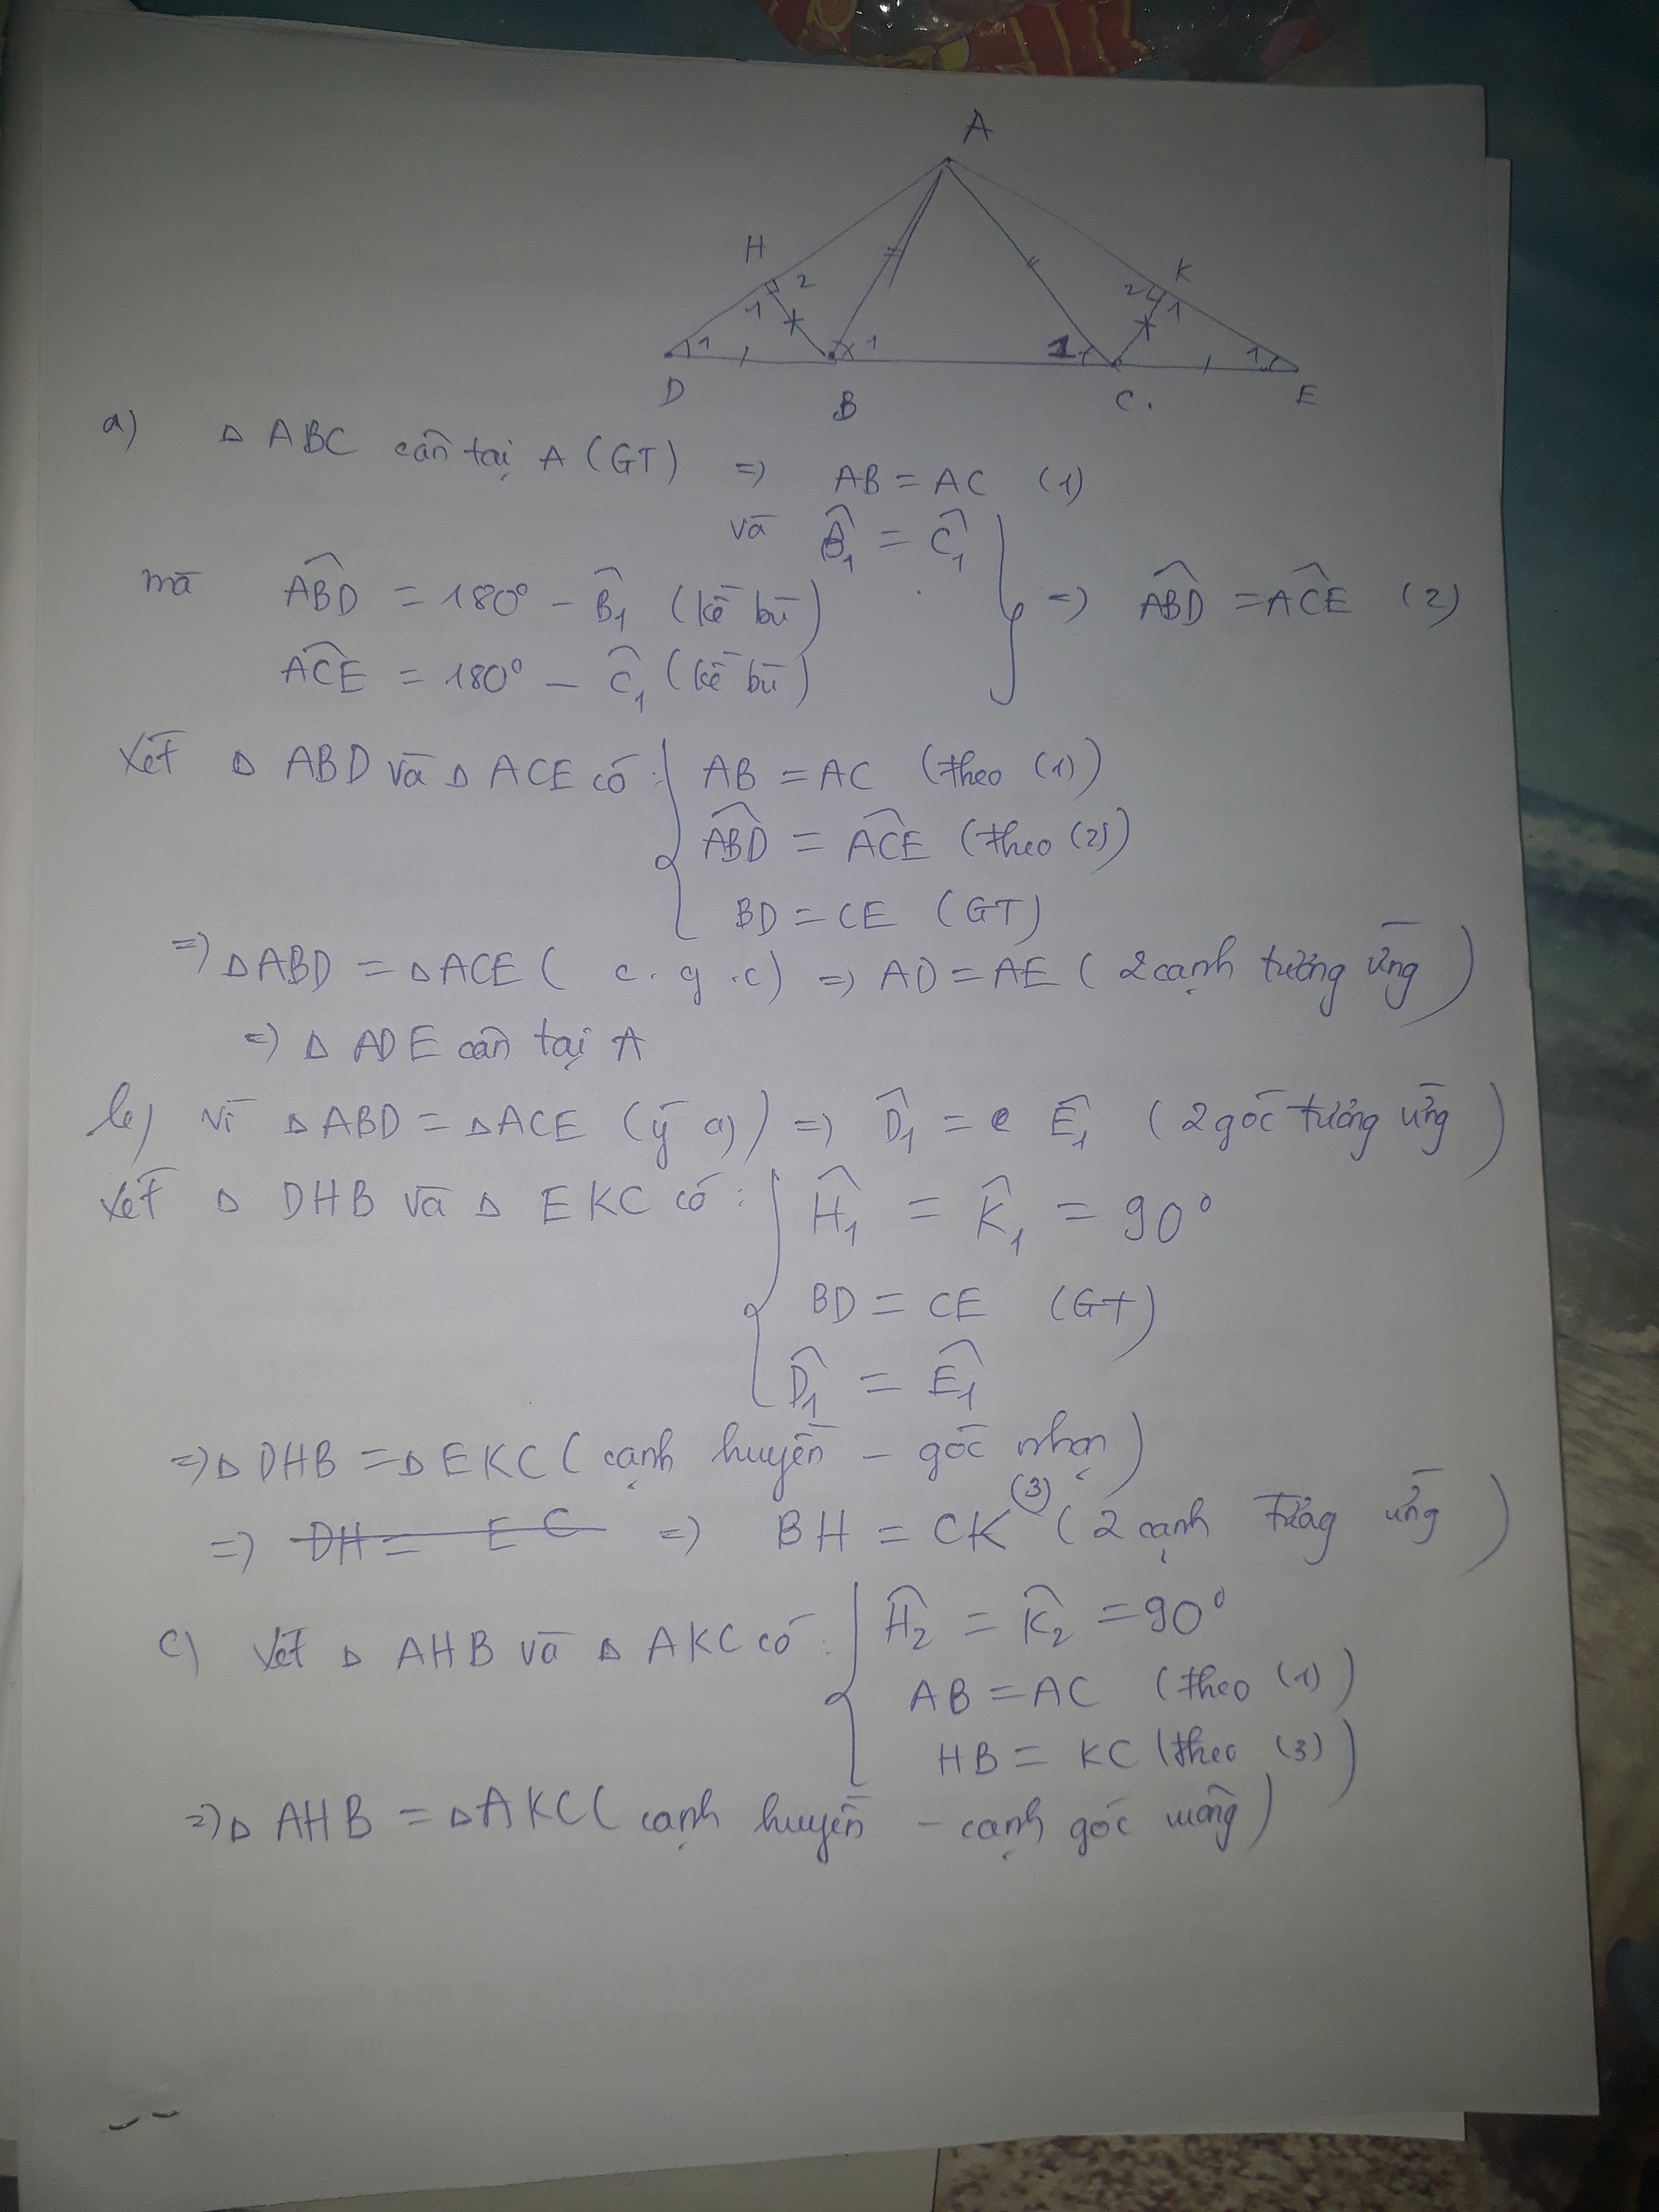 A
H
2
K
2
1
1
1
1
1
1
D
B
C.
E
a) Δ ABC cân tại A (GT) => AB = AC (1)
và B̂₁ = Ĉ₁
mà ABD̂ = 180° - B̂₁ (kề bù) => ABD̂ = ACÊ (2)
ACÊ = 180° - Ĉ₁ (kề bù)
Xét Δ ABD và Δ ACE có: AB = AC (theo (1))
ABD̂ = ACÊ (theo (2))
BD = CE (GT)
=> Δ ABD = Δ ACE ( c.g.c) => AD = AE ( 2 cạnh tương ứng )
=> Δ ADE cân tại A
b) Vì Δ ABD = Δ ACE (ý a)) => D̂₁ = Ê₁ ( 2 góc tương ứng )
Xét Δ DHB và Δ EKC có: Ĥ₁ = K̂₁ = 90°
BD = CE (GT)
D̂₁ = Ê₁
=> Δ DHB = Δ EKC ( cạnh huyền - góc nhọn )
=> DH = E C => BH = CK (3) ( 2 cạnh tương ứng )
c) Xét Δ AHB và Δ AKC có: Ĥ₂ = K̂₂ = 90°
AB = AC (theo (1))
HB = KC (theo (3))
=> Δ AHB = Δ AKC ( cạnh huyền - cạnh góc vuông )